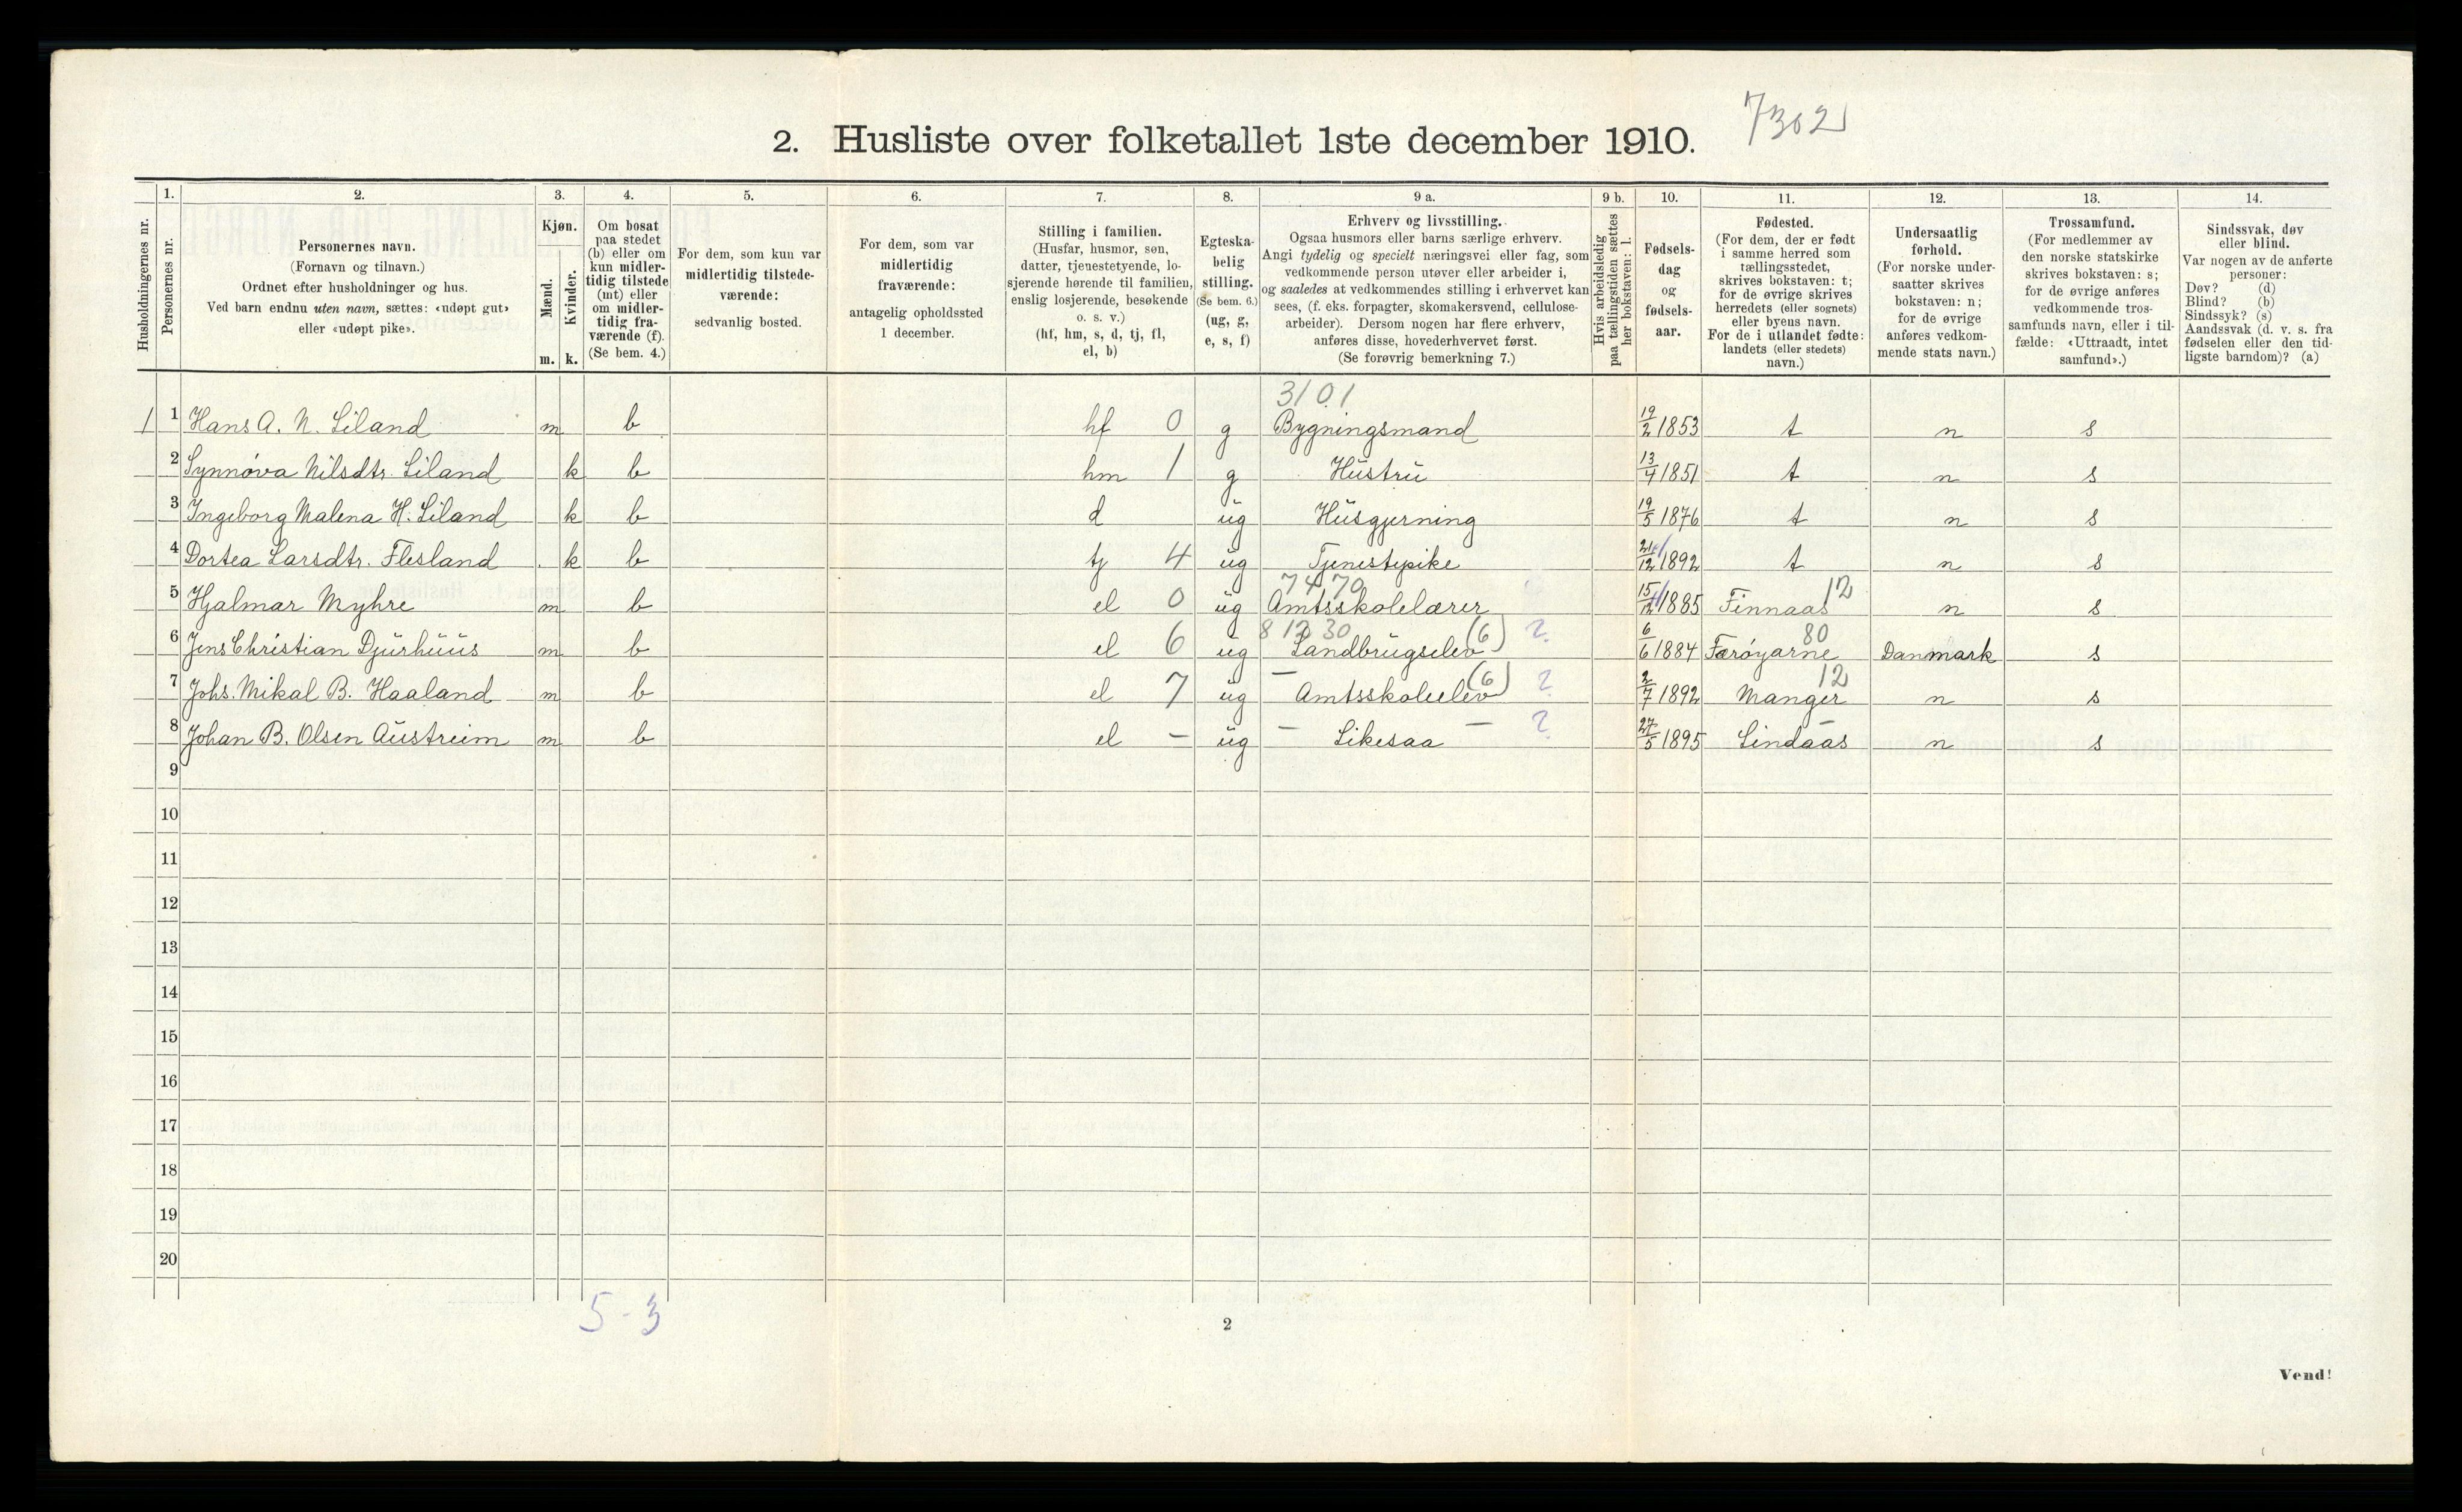 7302
2. Husliste over folketallet 1ste december 1910.
Husholdningernes nr.
1.
Personernes nr.
2.
Personernes navn.
(Fornavn og tilnavn.)
Ordnet efter husholdninger og hus.
Ved barn endnu uten navn, sættes: «udøpt gut»
eller «udøpt pike».
3.
Kjøn.
Mænd.
Kvinder.
m. k.
4.
Om bosat
paa stedet
(b) eller om
kun midler-
tidig tilstede
(mt) eller
om midler-
tidig fra-
værende (f).
(Se bem. 4.)
5.
For dem, som kun var
midlertidig tilstede-
værende:
sedvanlig bosted.
6.
For dem, som var
midlertidig
fraværende:
antagelig opholdssted
1 december.
7.
Stilling i familien.
(Husfar, husmor, søn,
datter, tjenestetyende, lo-
sjerende hørende til familien,
enslig losjerende, besøkende
o. s. v.)
(hf, hm, s, d, tj, fl,
el, b)
8.
Egteska-
belig
stilling.
(Se bem. 6.)
(ug, g,
e, s, f)
9 a.
Erhverv og livsstilling.
Ogsaa husmors eller barns særlige erhverv.
Angi tydelig og specielt næringsvei eller fag, som
vedkommende person utøver eller arbeider i,
og saaledes at vedkommendes stilling i erhvervet kan
sees, (f. eks. forpagter, skomakersvend, cellulose-
arbeider). Dersom nogen har flere erhverv,
anføres disse, hovederhvervet først.
(Se forøvrig bemerkning 7.)
9 b.
Hvis arbeidsledig
paa tællingstiden sættes
her bokstaven: l.
10.
Fødsels-
dag
og
fødsels-
aar.
11.
Fødested.
(For dem, der er født
i samme herred som
tællingsstedet,
skrives bokstaven: t;
for de øvrige skrives
herredets (eller sognets)
eller byens navn.
For de i utlandet fødte:
landets (eller stedets)
navn.)
12.
Undersaatlig
forhold.
(For norske under-
saatter skrives
bokstaven: n;
for de øvrige
anføres vedkom-
mende stats navn.)
13.
Trossamfund.
(For medlemmer av
den norske statskirke
skrives bokstaven: s;
for de øvrige anføres
vedkommende tros-
samfunds navn, eller i til-
fælde: «Uttraadt, intet
samfund».)
14.
Sindssvak, døv
eller blind.
Var nogen av de anførte
personer:
Døv? (d)
Blind? (b)
Sindssyk? (s)
Aandssvak (d. v. s. fra
fødselen eller den tid-
ligste barndom)? (a)
3101
1 1 Hans A. N. Liland m b hf 0 g Bygningsmand 19/2 1853 t n s
2 Synnøva Nilsdtr. Liland k b hm 1 g Hustru 13/4 1851 t n s
3 Ingeborg Malena H. Liland k b d ug Husgjerning 19/5 1876 t n s
4 Dortea Larsdtr. Flesland k b tj 4 ug Tjenestepike 1892 t n s
7470 12
5 Hjalmar Myhre m b el 0 ug Amtsskolelærer 15/12 1885 Finnaas n s
80
6 Jens Christian Djurhuus m b el 6 ug Landbrugselev (6) ? 6/6 1884 Færøyarne Danmark s
12
7 Johs. Mikal B. Haaland m b el 7 ug — Amtsskoleelev (6) ? 2/7 1892 Manger n s
8 Johan B. Olsen Austreim m b el — ug — Likesaa — ? 27/5 1895 Lindaas n s
9
10
11
12
13
14
15
16
17
18
19
20
5-3
2
Vend!